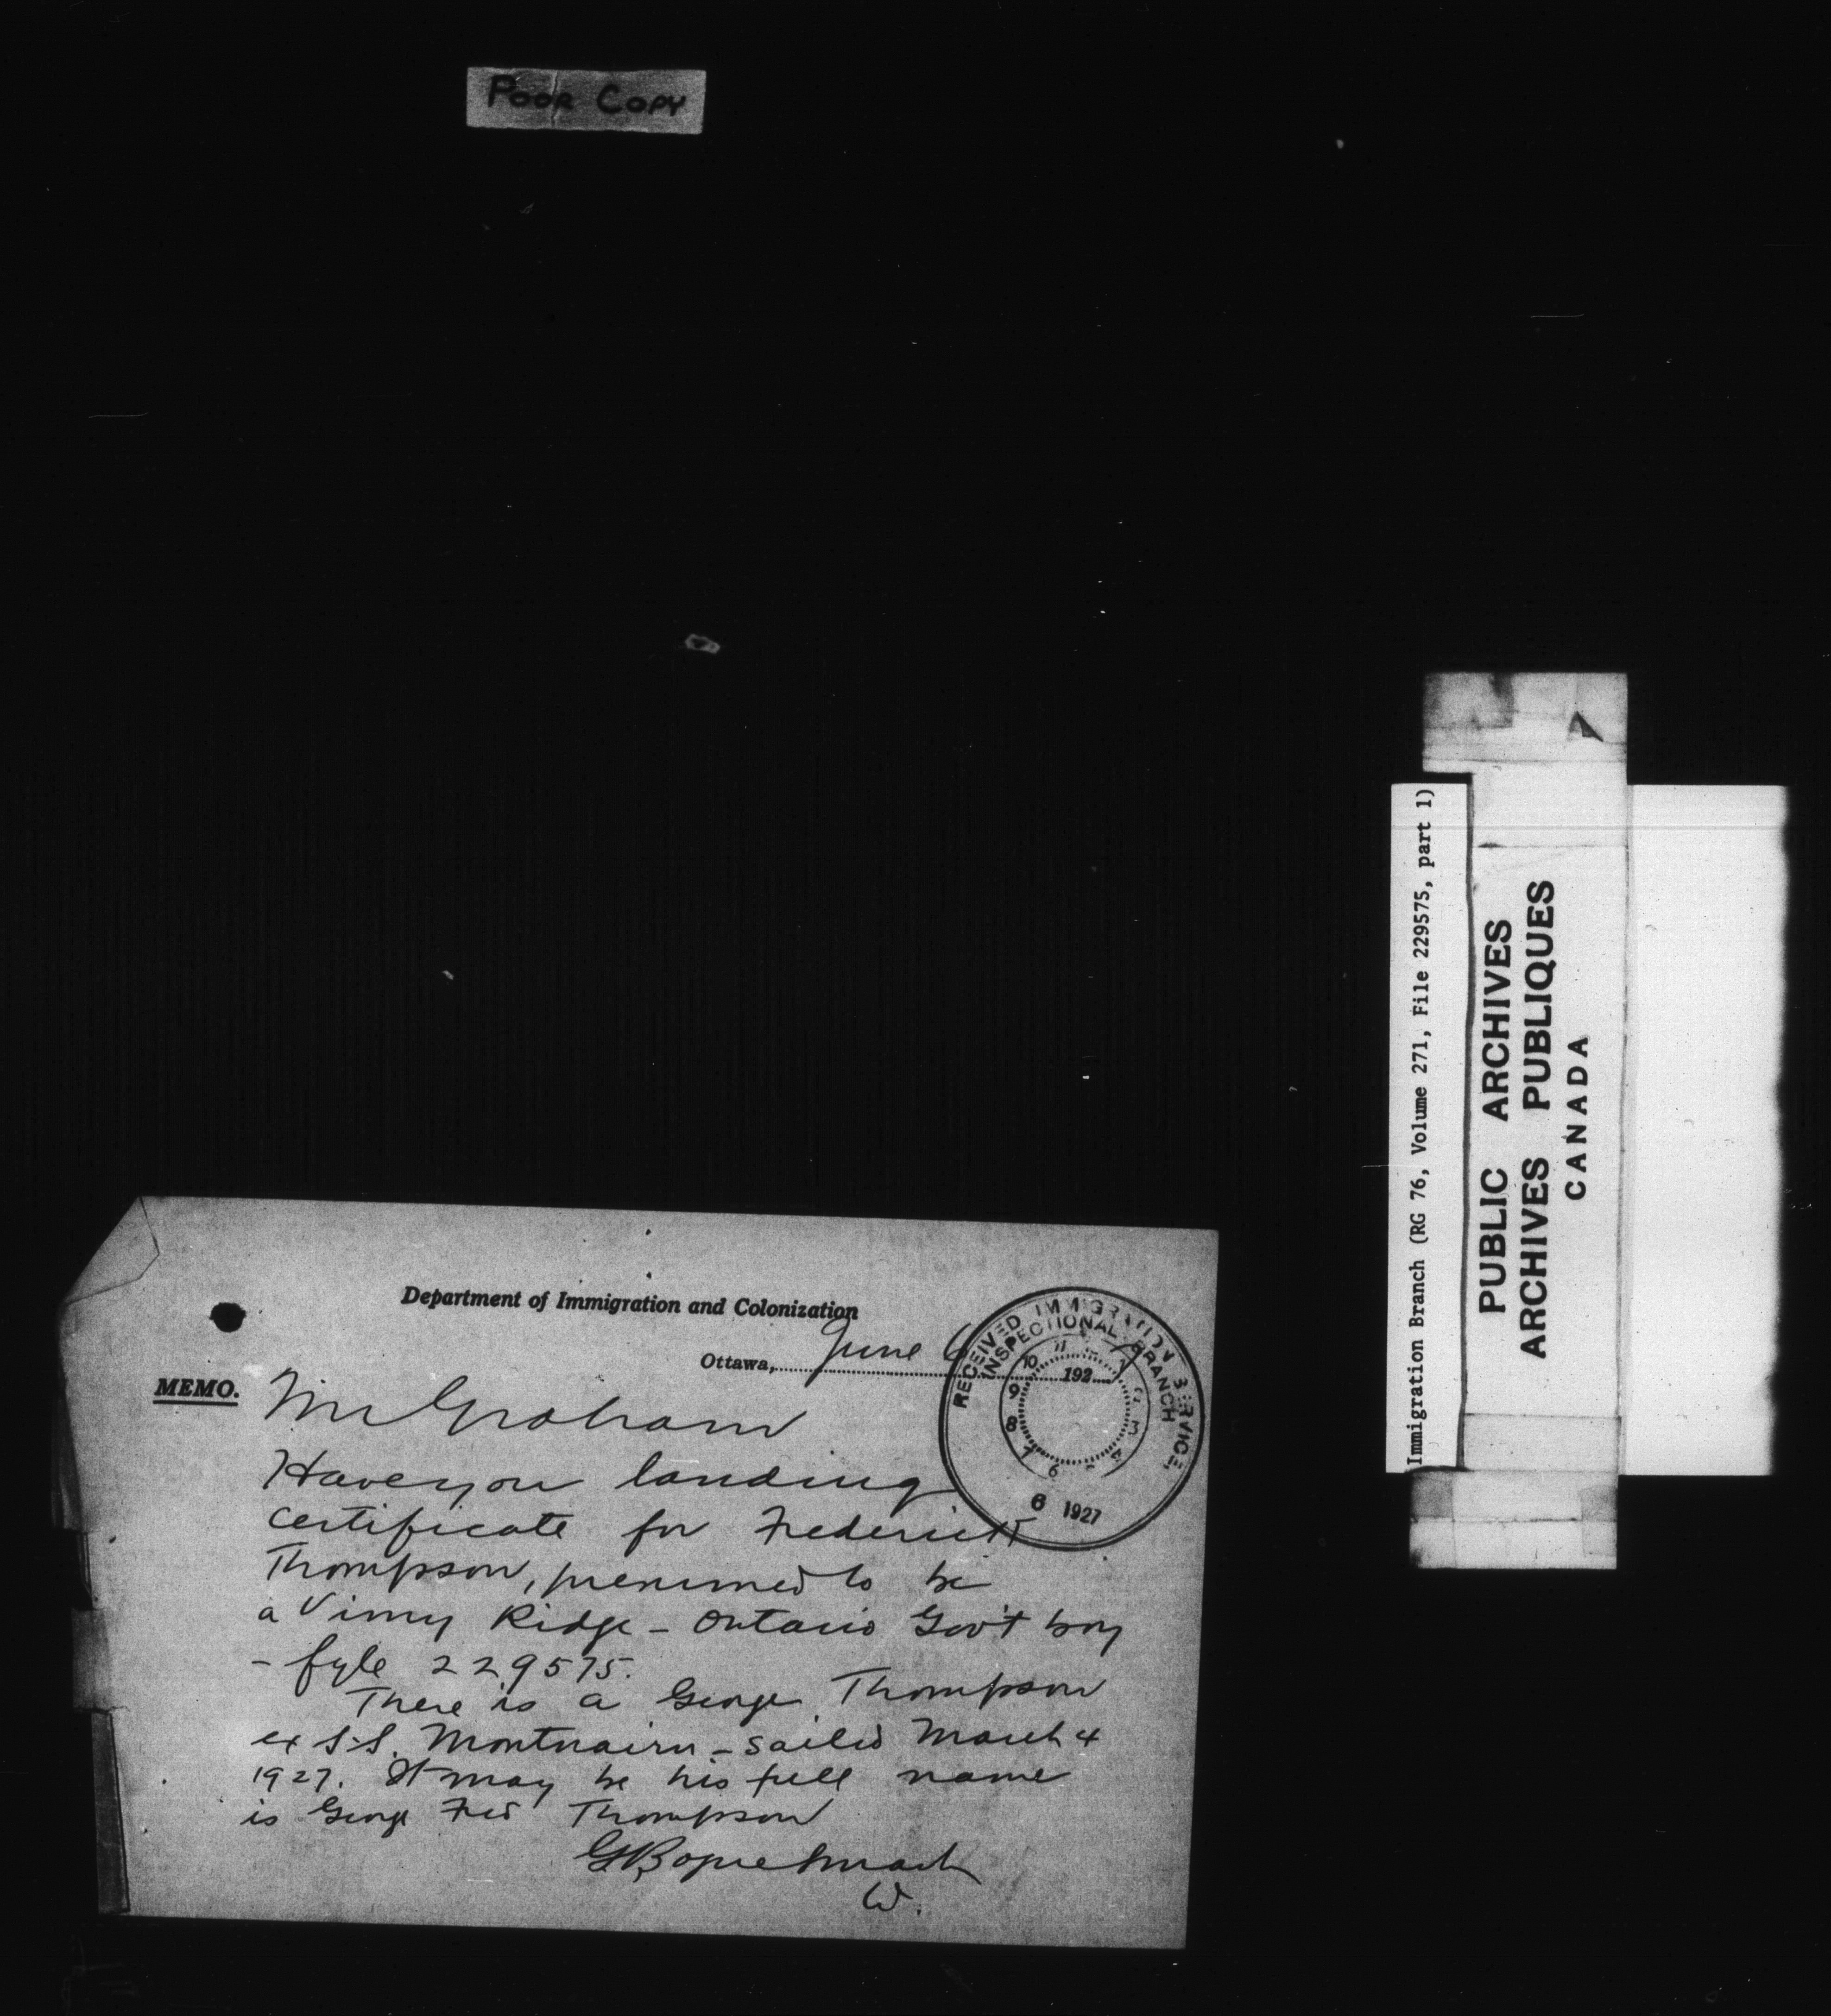 POOR COPY
Department of Immigration and Colonization
Ottawa, June 6 1927
MEMO.
Mr Graham
Have you landing
certificate for Frederick
Thompson, presumed to be
a Vimy Ridge - Ontario Gov't boy
- fyle 229575.
There is a George Thompson
ex S.S. Montnairn - sailed March 4
1927. It may be his full name
is George Fred Thompson
W.
RECEIVED IMMIGRATION SERVICE
INSPECTIONAL BRANCH
10 11 1 2 3 4 6 7 8 9
6 1927
Immigration Branch (RG 76, Volume 271, File 229575, part 1)
PUBLIC ARCHIVES
ARCHIVES PUBLIQUES
CANADA